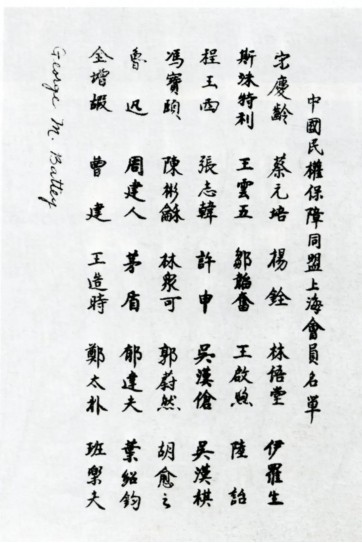 中國民權保障同盟上海會員名單
宋慶齡 蔡元培 楊銓 林語堂 伊羅生
斯沫特利 王雲五 鄒韜奮 王啟煦 陸詒
程王西 張志韓 許申 吳漢傖 吳漢棋
馮寶頤 陳彬龢 林衆可 郭蔚然 胡愈之
魯迅 周建人 茅盾 郁達夫 葉紹鈞
全增嘏 曹建 王造時 鄭太朴 班樂夫
George M. Battey